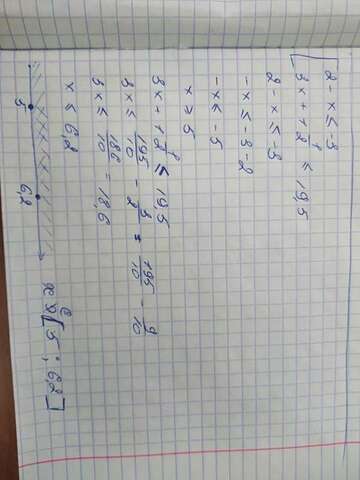 2 - x ≤ -3
3x + 1 1/2 ≤ 19,5
2 - x ≤ -3
-x ≤ -3 - 2
-x ≤ -5
x ≥ 5
3x + 1 1/2 ≤ 19,5
3x ≤ 195/10 - 3/2 = 195/10 - 9/10
3x ≤ 186/10 = 18,6
x ≤ 6,2
5 6,2 x ∈ [5; 6,2]